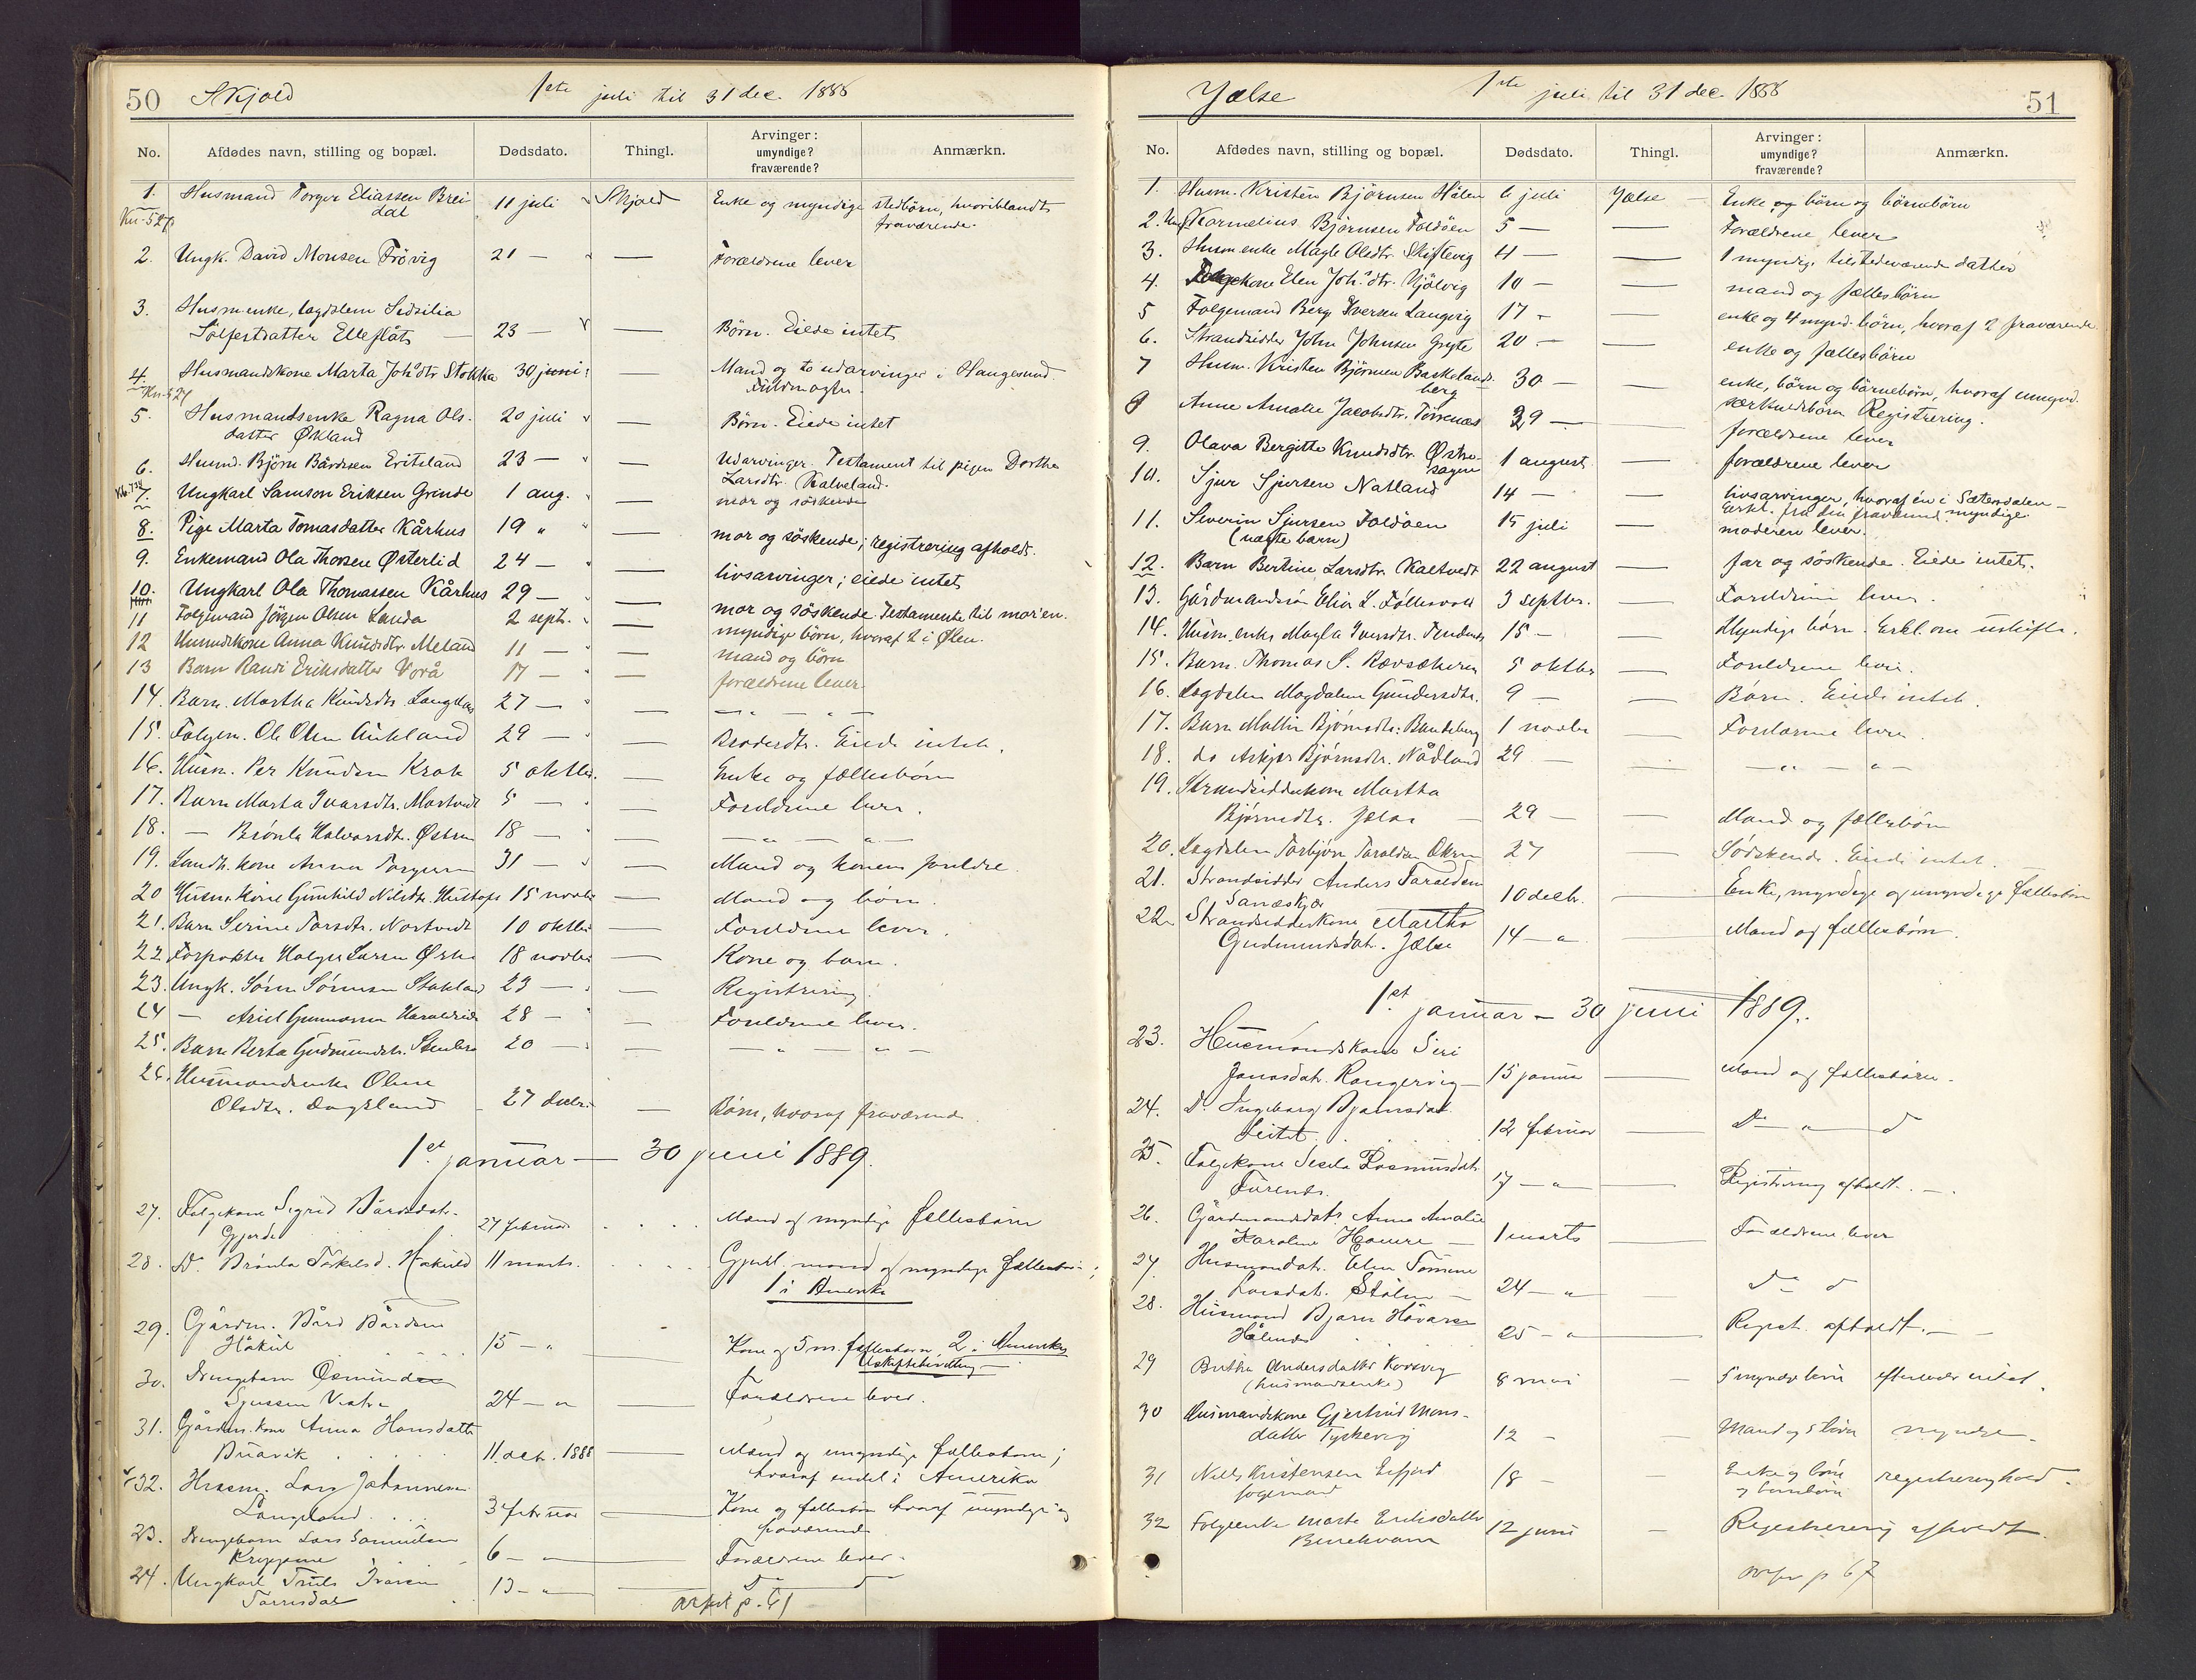 50 Skjold 1ste juli til 31 dec. 1888
No. Afdødes navn, stilling og bopæl. Dødsdato. Thingl. Arvinger: umyndige? fraværende? Anmærkn.
1. Husmand Torger Eliassen Brei- 11 juli Skjold Enke og myndige stedbörn, hvoriblandt
dal fraværende.
2. Ungk. David Monsen Frövig 21 — — Forældrene lever
3. Husm.enke, lagdslem Sidsilia
Sölfestdatter Elleflåt 23 — — Börn. Eiede intet
4. Husmandskone Marta Joh.dtr Stokka 30 juni — Mand og to udarvinger i Haugesund.
5. Husmandsenke Ragna Ols- 20 juli — Börn. Eiede intet
datter Økland
6. Husmd. Björn Bårdsen Eriksland 23 — — Udarvinger. Testament til pigen Dorthe
Larsdtr. Kalveland.
7. Ungkarl Samson Eriksen Grinde 1 aug. — mor og söskende
8. Pige Marta Tomasdatter Kårhus 19 " — mor og söskende; registrering afholdt.
9. Enkemand Ola Thorsen Østerlid 24 — — livsarvinger; eiede intet
10. Ungkarl Ola Thomassen Kårhus 29 — — mor og söskende. Testamente til mor'en.
11 Folgemand Jörgen Olsen Landa 2 sept. — myndige börn, hvoraf 2 i Ølen.
12 Husmdskone Anna Knudsdtr. Meland 11 — — mand og börn
13 Barn Randi Eriksdatter Vorå 17 — — forældrene lever
14. Barn. Martha Knudsdtr. Langeland 27 — — — " — " —
15. Folgem. Ole Olsen Aukland 29 — — Broderdtr. Eiede intet.
16. Husm. Per Knudsen Krak 5 oktbr. — Enke og fællesbörn
17. Barn Marta Ivarsdtr. Mostvedt 5 — — Forældrene lever.
18. — Brönla Halvorsdtr. 18 — — — " — " —
19. Landh. kone Anna Torgersen 31 — — Mand og konens forældre.
20 Husm. kone Gunhild Nilsdtr. 15 novbr — Mand og börn.
21. Barn Serine Torsdtr. Nortvedt 10 oktbr — Forældrene lever.
22. Forpakter Holger Larsen 18 novbr — Kone og barn.
23. Ungk. Sören Sörensen Stakland 23 — — Registrering.
24 — Gunnarsen 28 — — Forældrene lever.
25. Barn Berta Gudmundsdtr. 20 — — — " — " —
26. Husmandsenke Oline
Olsdtr. Dagsland 27 decbr. — Börn, hvoraf fraværende.
1st januar — 30 juni 1889.
27. Folgekone Sigrid Bårdsdatr.
Gjerde 27 februar Mand og myndige fællesbörn
28. Do Brönla Torkelsd. Håkull 11 marts. Gjenl. mand og myndige fællesbörn;
1 i Amerika
29. Gårdm. Bård Bårdsen
Håkul 15 — " Kone og 5 m. fællesbörn, 2 i Amerika
Uskiftebevilling
30. Drengebarn Osmund
Sjursen Vestre 24 — " Forældrene lever.
31. Gårdm. kone Anna Hansdatter
Buavik 11 dcb. 1888 — Mand og umyndige fællesbörn;
hvoraf endel i Amerika
32. Husm. Lars Johannesen
Langeland 3 februar — Kone og fællesbörn hvoraf umyndige og
fraværende
33. Drengebarn Lars Samuelsen
6 — " — Forældrene lever.
34. Ungkarl Truls Ivarsen
13 — "

Jælse 1ste juli til 31 dec. 1888 51
No. Afdødes navn, stilling og bopæl. Dødsdato. Thingl. Arvinger: umyndige? fraværende? Anmærkn.
1. Husm. Kristen Björnsen Hålen 6 juli Jælse Enke og börn og börnebörn
2. Kornelius Björnsen Foldöen 5 — — Forældrene lever
3. Husm enke Magle Olsdtr. Skiftevig 4 — — 1 myndig tilstedeværende datter
4. kone Elen Joh.s dtr. Kjölvig 10 — — mand og fællesbörn
5 Folgemand Berg Iversen Langvig 17 — — enke og 4 mynd. börn, hvoraf 2 fraværende.
6. Strandsidder John Johnsen Gryte 20 — — enke og fællesbörn
7 Husm. Kristen Björnsen Baskelands- 30 — — enke, börn og börnebörn, hvoraf umynd.
berg særkuldsbörn Registrering.
8 Anne Amalie Jacobsdtr. Torrenæs 29 — — forældrene lever
9. Olava Bergitte Knudsdtr. Østre- 1 august — forældrene lever
10. Sjur Sjursen Natland 14 — — livsarvinger, hvoraf én i Sætersdalen —
Erkl. fra den fraværende myndige
11. Severin Sjursen Foldöen 15 juli — moderen lever.
(uægte barn)
12. Barn Bertine Larsdtr. Kaltvedt 22 august — far og söskende. Eiede intet.
13. Gårdmandssön Elias L. Follesvold 3 septbr. — Forældrene lever.
14. Husm. enke Magla Iversdtr. 15 — — Myndige börn. Erkl. om uskifte.
15. Barn. Thomas S. 5 oktbr — Forældrene lever.
16. Lægdslem Magdalene Gundersdtr. 9 — — Börn. Eiede intet.
17. Barn Mallin Björnsdtr. 1 novbr — Forældrene lever.
18. do Björnsdtr. Nådland 29 — — — " — " —
19. Strandsidderkone Martha
Björnsdtr. Jælse 29 — — Mand og fællesbörn
20. Lægdslem Torbjörn Taraldsen 27 — Södskende. Eiede intet.
21. Strandsidder Anders Taraldsen
10 decbr. — Enke, myndige og umyndige fællesbörn
22. Strandsidderkone Martha
Gudmundsdat. Jælse 14 — " — Mand og fællesbörn.
1st januar — 30 juni 1889.
23. Husmandskone Siri
Jonasdatr. Rangervig 15 januar — Mand og fællesbörn.
24. Do Ingeborg Bjarnedat.
12 februar — Do — " — do
25. Folgekone Sesela Rasmusdat.
17 — " — Registrering afholdt.
26. Gårdmandsdatr. Anna Amalie
Karoline Hamre 1 marts — Forældrene lever
27. Husmandsdatr. Elen Tomine
Larsdat. 24 — " — do do
28. Husmand Bjarn Håvarsen
25 — " — Regist. afholdt.
29 Brithe Andersdatter
(husmandsenke) 8 mai — 5 myndige börn efterlader intet.
30 Husmandskone Gjertrud Mons-
datter Tyskevig 12 — — Mand og 5 börn myndige.
31 Nils Kristensen Erfjord 18 — — Enke og börn registrering hold.
og börnebörn
32 Folgeenke Marta Eriksdatter 12 juni — Registrering afholdt.
p 67